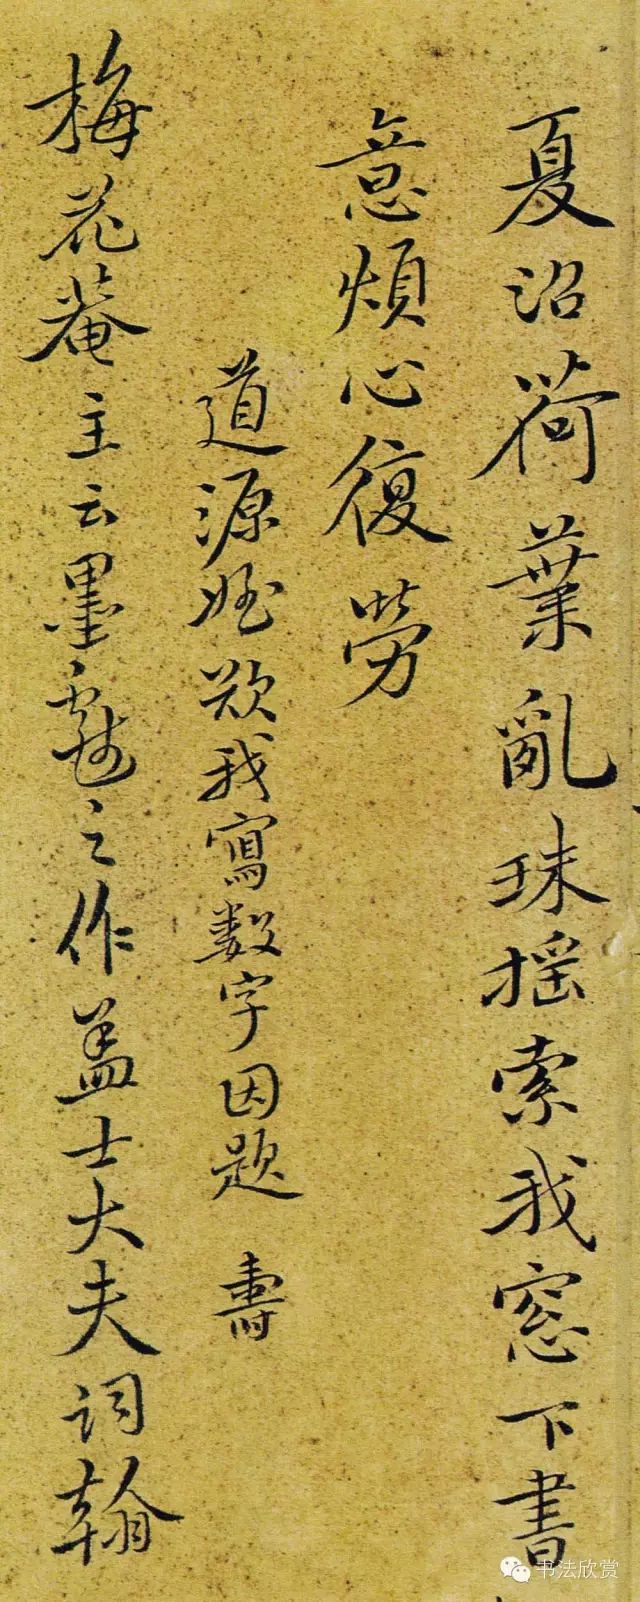 夏沼荷葉亂珠摇索我窓下書
意煩心復勞
道源姪欲我寫数字因題 壽
梅花菴主云墨戲之作盖士大夫詞翰
书法欣赏